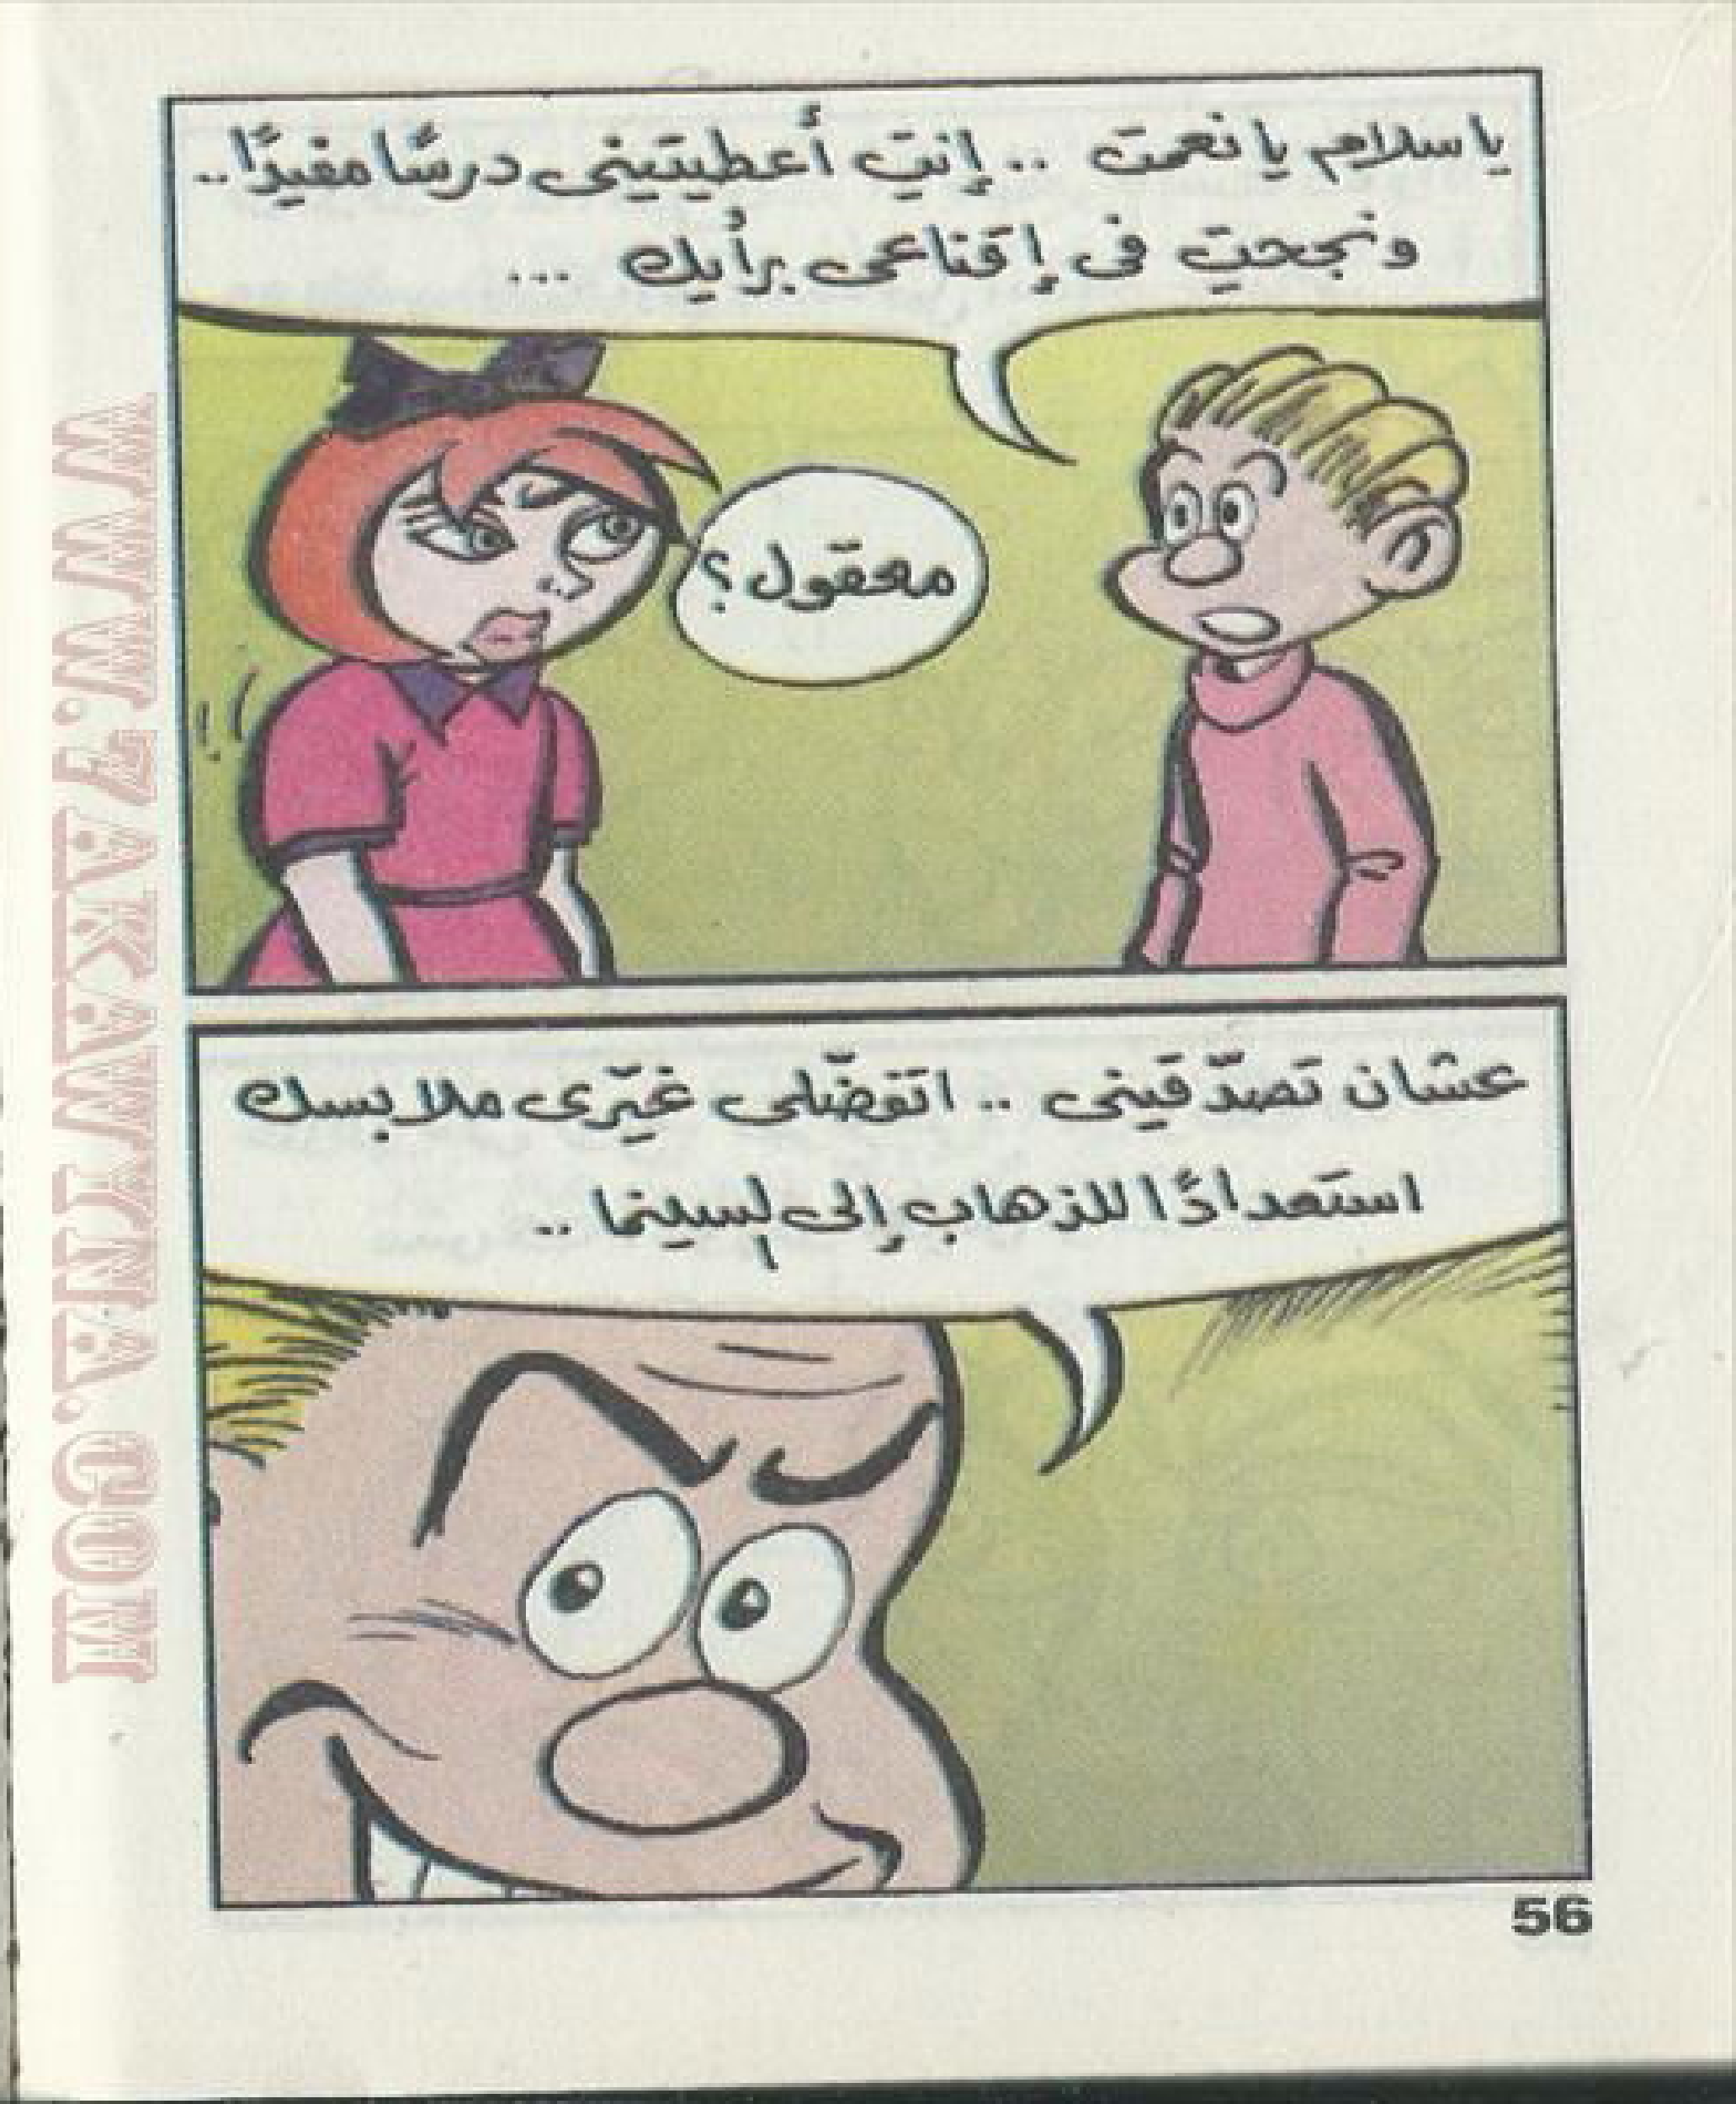 يا سلام يا نعمت .. إنتِ أعطيتينى درسًا مفيدًا ..
ونجحتِ فى إقناعى برأيك ...
معقول ؟
عشان تصدّقينى .. اتفضّلى غيّرى ملابسك
استعدادًا للذهاب إلى السينما ..
56
WWW.7AKAWTNA.COM